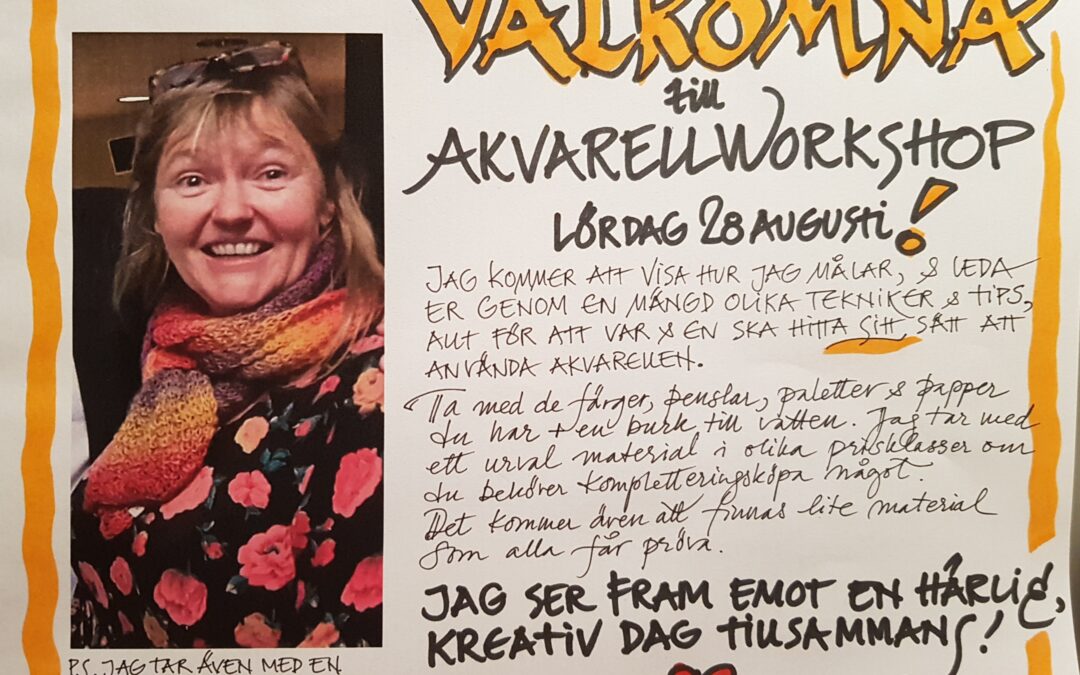 VÄLKOMNA
till
AKVARELLWORKSHOP
LÖRDAG 28 AUGUSTI!
JAG KOMMER ATT VISA HUR JAG MÅLAR, & LEDA
ER GENOM EN MÄNGD OLIKA TEKNIKER & TIPS,
ALLT FÖR ATT VAR & EN SKA HITTA SITT SÄTT ATT
ANVÄNDA AKVARELLEN.
Ta med de färger, penslar, paletter & papper
du har + en burk till vatten. Jag tar med
ett urval material i olika prisklasser om
du behöver kompletteringsköpa något.
Det kommer även att finnas lite material
som alla får pröva.
JAG SER FRAM EMOT EN HÄRLIG,
KREATIV DAG TILLSAMMANS!
P.S. JAG TAR ÄVEN MED EN